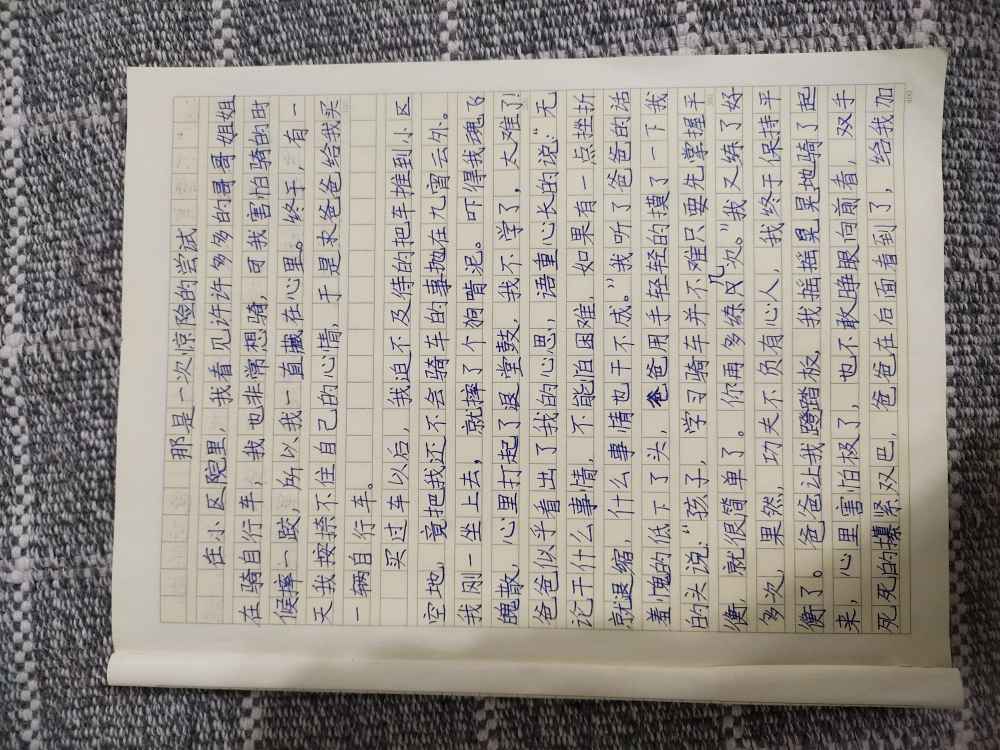 那是一次惊险的尝试
在小区院里，我看见许许多多的哥哥姐姐
在骑自行车，我也非常想骑，可我害怕骑的时
候摔一跤，所以我一直藏在心里。终于，有一
天我按捺不住自己的心情，于是求爸爸给我买
一辆自行车。
买过车以后，我迫不及待的把车推到小区
空地，竟把我还不会骑车的事抛在九宵云外。
我刚一坐上去，就摔了个狗啃泥。吓得我魂飞
魄散，心里打起了退堂鼓，我不学了，太难了！
爸爸似乎看出了我的心思，语重心长的说：“无
论干什么事情，不能怕困难，如果有一点挫折
就退缩，什么事情也干不成。”我听了爸爸的话
羞愧的低下了头，爸爸用手轻轻的摸了一下我
的头说：“孩子，学习骑车并不难只要先掌握平
衡，就很简单了。你再多练几次。”我又练了好
多次，果然，功夫不负有心人，我终于保持平
衡了。爸爸让我蹬踏板，我摇摇晃晃地骑了起
来，心里害怕极了，也不敢睁眼向前看，双手
死死的攥紧双巴，爸爸在后面看到了，给我加